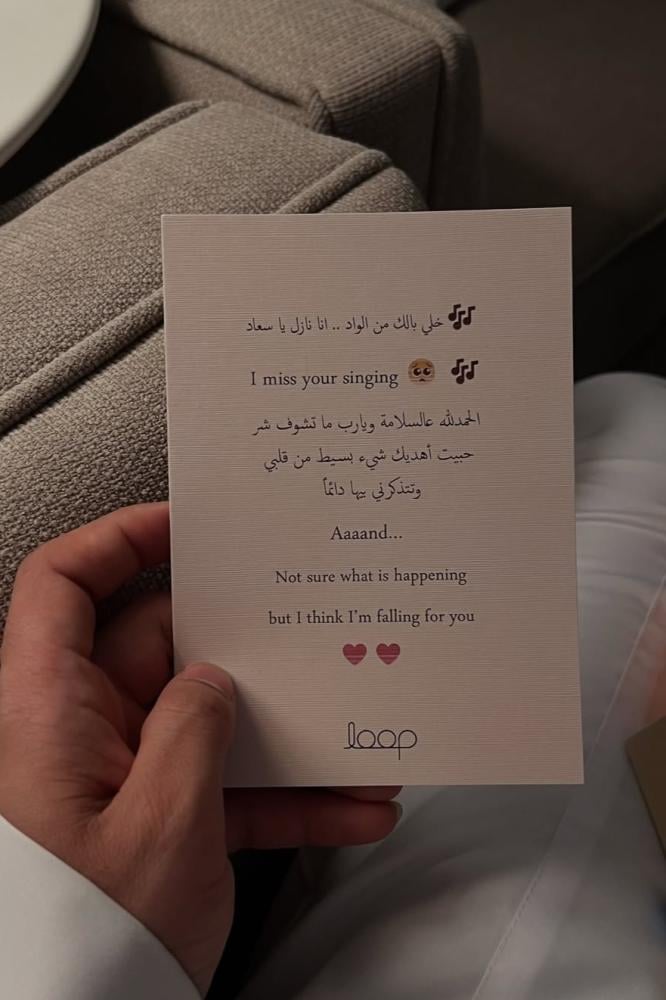 🎶 خلي بالك من الواد .. انا نازل يا سعاد
I miss your singing 🥺 🎶
الحمدلله عالسلامة ويارب ما تشوف شر
حبيت أهديك شيء بسيط من قلبي
وتتذكرني بيها دائماً
Aaaand...
Not sure what is happening
but I think I'm falling for you
💕
loop